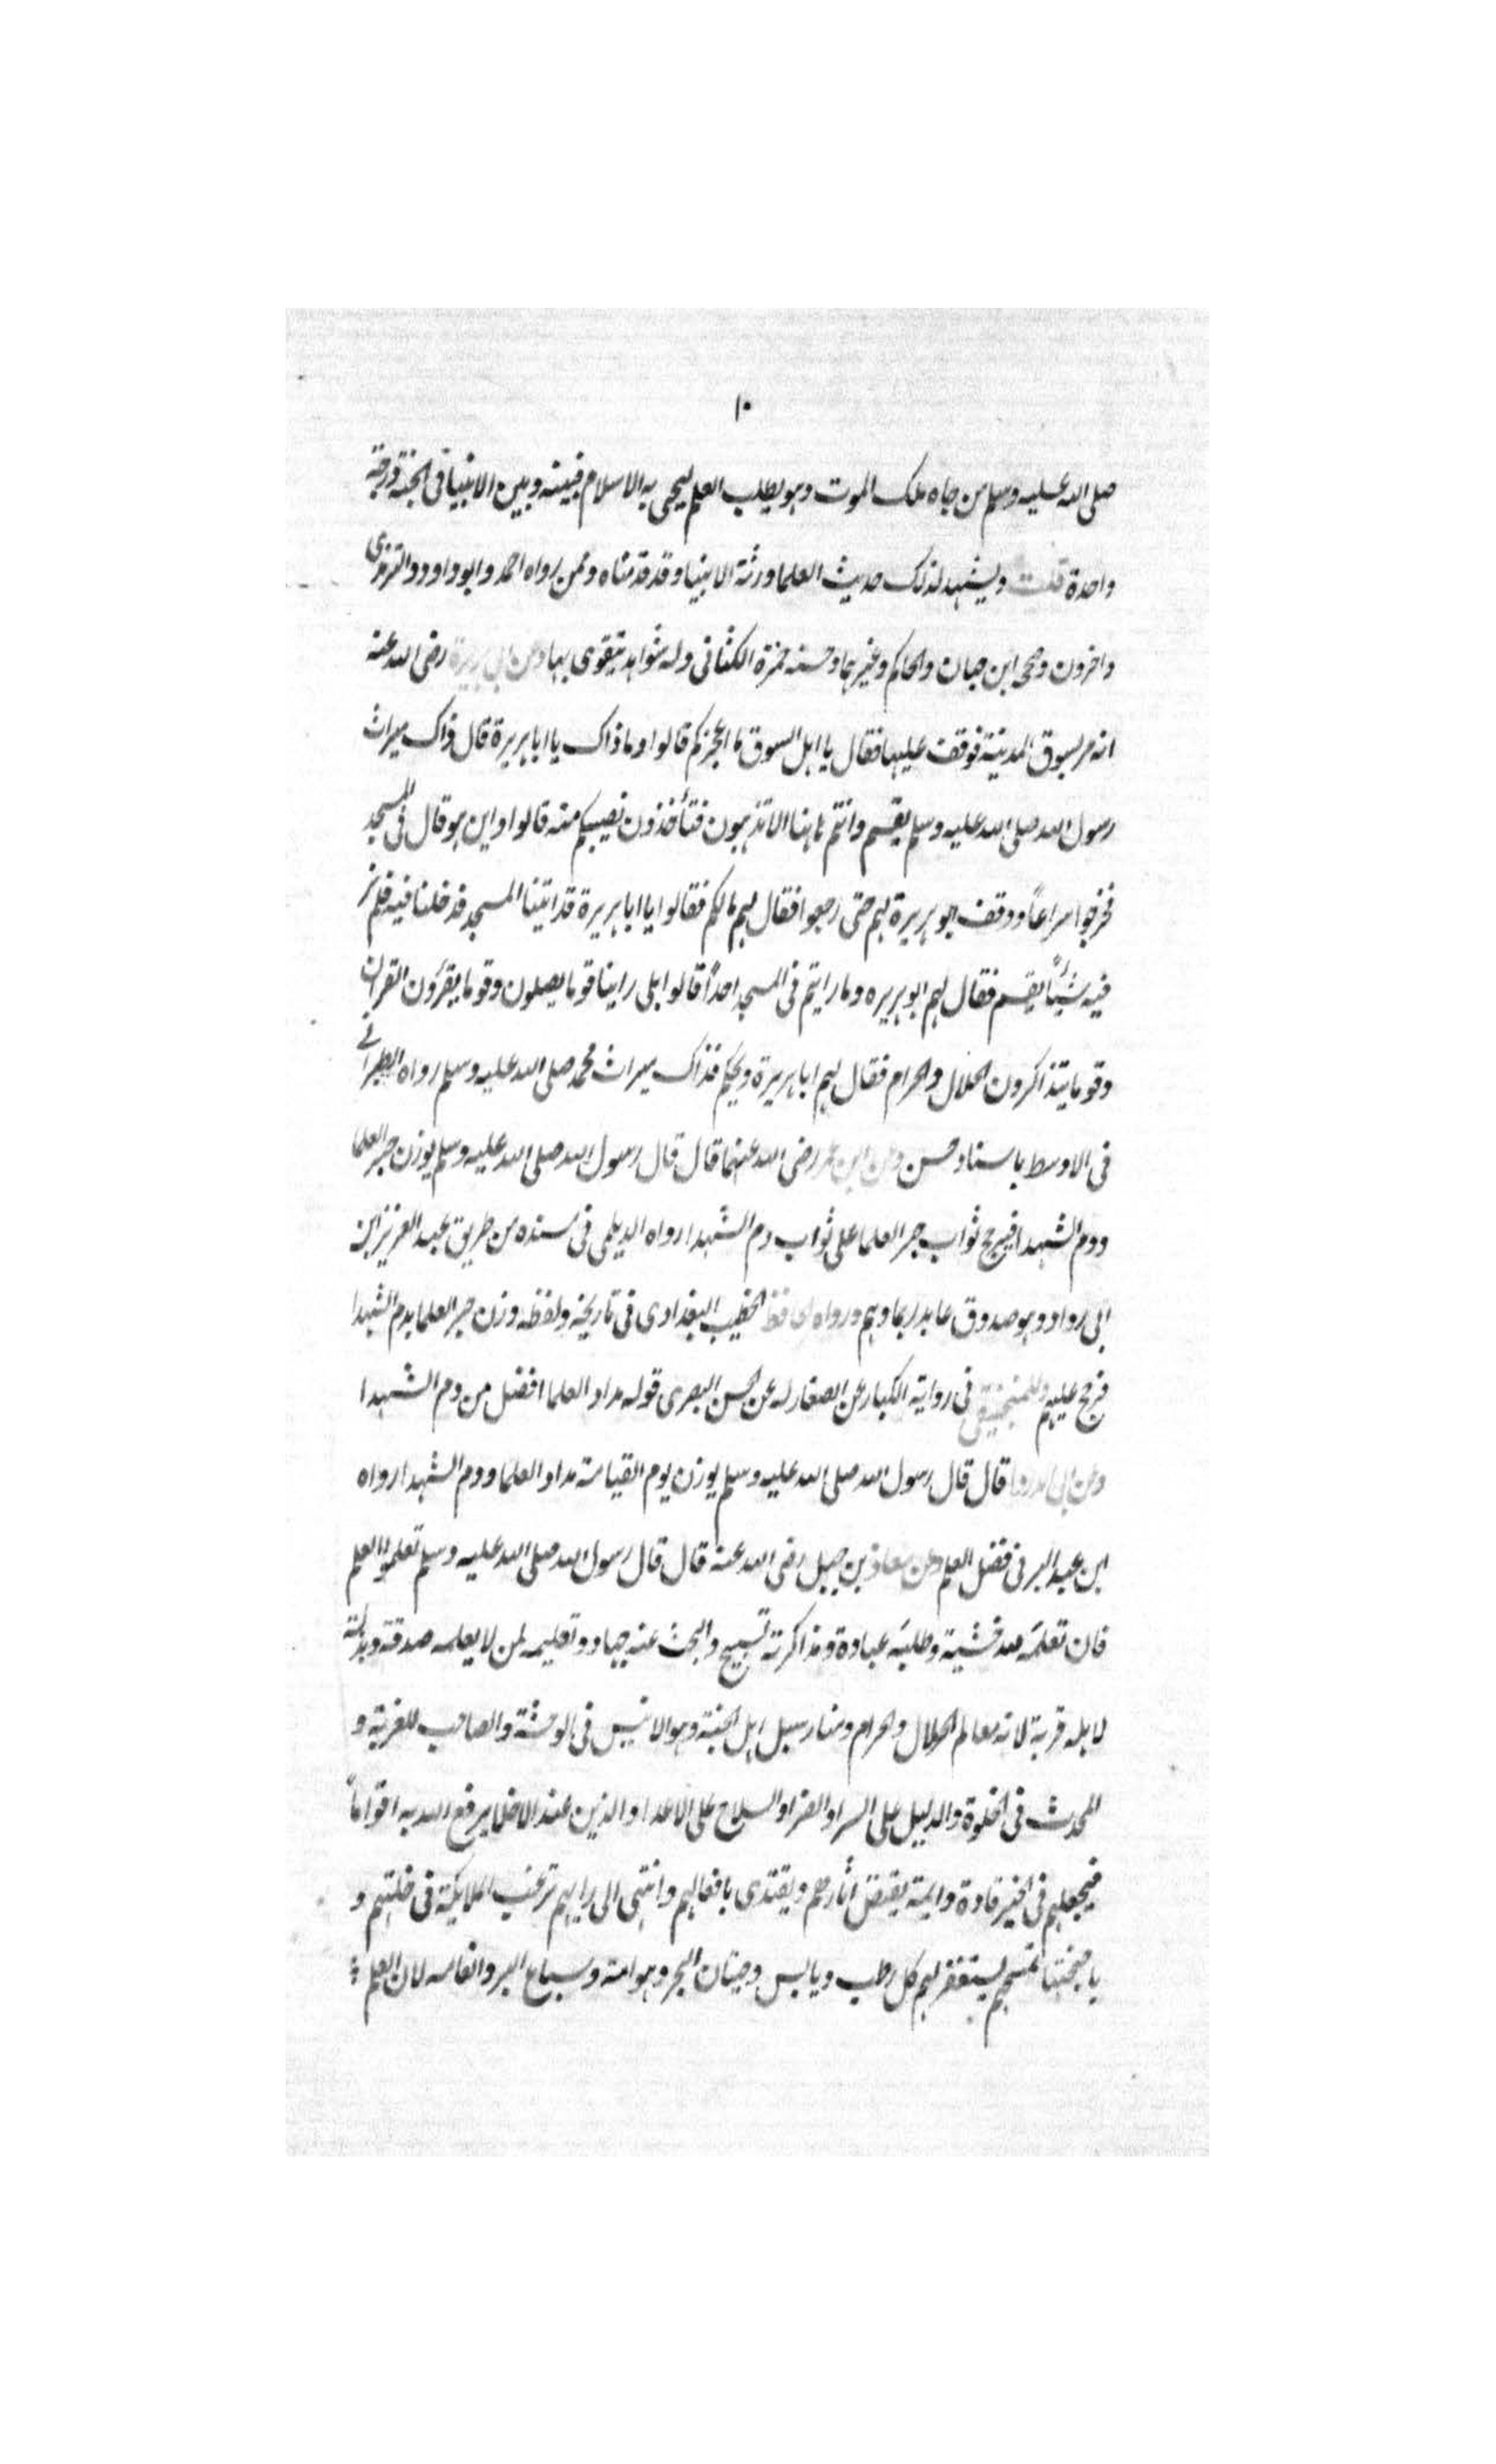 ١٠
صلى الله عليه وسلم من جاه ملك الموت وهو يطلب العلم ليحيى به الاسلام فبينه وبين الانبيا فى الجنة درجة
واحدة قلت ويشهد لذلك حديث العلما ورثة الانبيا وقد قدمناه وممن رواه احمد وابو داود والترمذى
واخرون وصححه ابن حبان والحاكم وغيرهما وحسنه حمزة الكنانى وله شواهد يتقوى بها وعن ابى هريرة رضى الله عنه
انه مر بسوق المدينة فوقف عليها فقال يا اهل السوق ما اعجزكم قالوا وما ذاك يا ابا هريرة قال ذاك ميراث
رسول الله صلى الله عليه وسلم يقسم وانتم هاهنا الا تذهبون فتأخذون نصيبكم منه قالوا واين هو قال فى المسجد
فخرجوا سراعاً ووقف ابو هريرة لهم حتى رجعوا فقال لهم مالكم فقالوا يا ابا هريرة قد اتينا المسجد فدخلنا فيه فلم نر
فيه شيئاً يقسم فقال لهم ابو هريره وما رايتم فى المسجد احداً قالوا بلى راينا قوما يصلون وقوما يقرؤن القران
وقوما يتذاكرون الحلال والحرام فقال لهم ابا هريرة ويحكم فذاك ميراث محمد صلى الله عليه وسلم رواه الطبرانى
فى الاوسط باسناد حسن وعن ابن عمر رضى الله عنهما قال قال رسول الله صلى الله عليه وسلم يوزن حبر العلما
ودم الشهدا فيرجح ثواب حبر العلما على ثواب دم الشهدا رواه الديلمى فى مسنده من طريق عبد العزيز ابن
ابى رواد وهو صدوق عابد ربما وهم ورواه الحافظ الخطيب البغدادى فى تاريخه ولفظه وزن حبر العلما بدم الشهدا
فرجح عليهم وللمنجنيقى فى رواية الكبار عن الصغار له عن الحسن البصرى قوله مداد العلما افضل من دم الشهدا
وعن ابى الدردا قال قال رسول الله صلى الله عليه وسلم يوزن يوم القيامة مداد العلما ودم الشهدا رواه
ابن عبد البر فى فضل العلم وعن معاذ بن جبل رضى الله عنه قال قال رسول الله صلى الله عليه وسلم تعلموا العلم
فان تعلمه لله خشية وطلبه عبادة ومذاكرته تسبيح والبحث عنه جهاد وتعليمه لمن لا يعلمه صدقة وبذله
لاهله قربة لانه معالم الحلال والحرام ومنار سبل اهل الجنة وهو الانيس فى الوحشة والصاحب للغربة و
المحدث فى الخلوة والدليل على السرا والضرا والسلاح على الاعدا والزين عند الاخلا يرفع الله به اقواماً
فيجعلهم فى الخير قادة وايمة يقتص اثارهم ويقتدى بافعالهم وانتهى الى رايهم ترغب الملايكة فى خلتهم و
باجنحتها تمسحهم يستغفر لهم كل رطب ويابس وحيتان البحر وهوامه وسباع البر وانعامه لان العلم